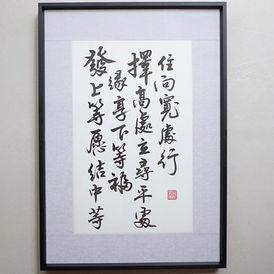 發上等愿結中等
緣享下等福
擇高處立尋平處
住向寬處行